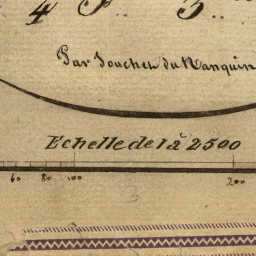 4 P. 3.
Par Souchet du Nanquin
Echelle de 1 à 2500
60 80 100 200
3